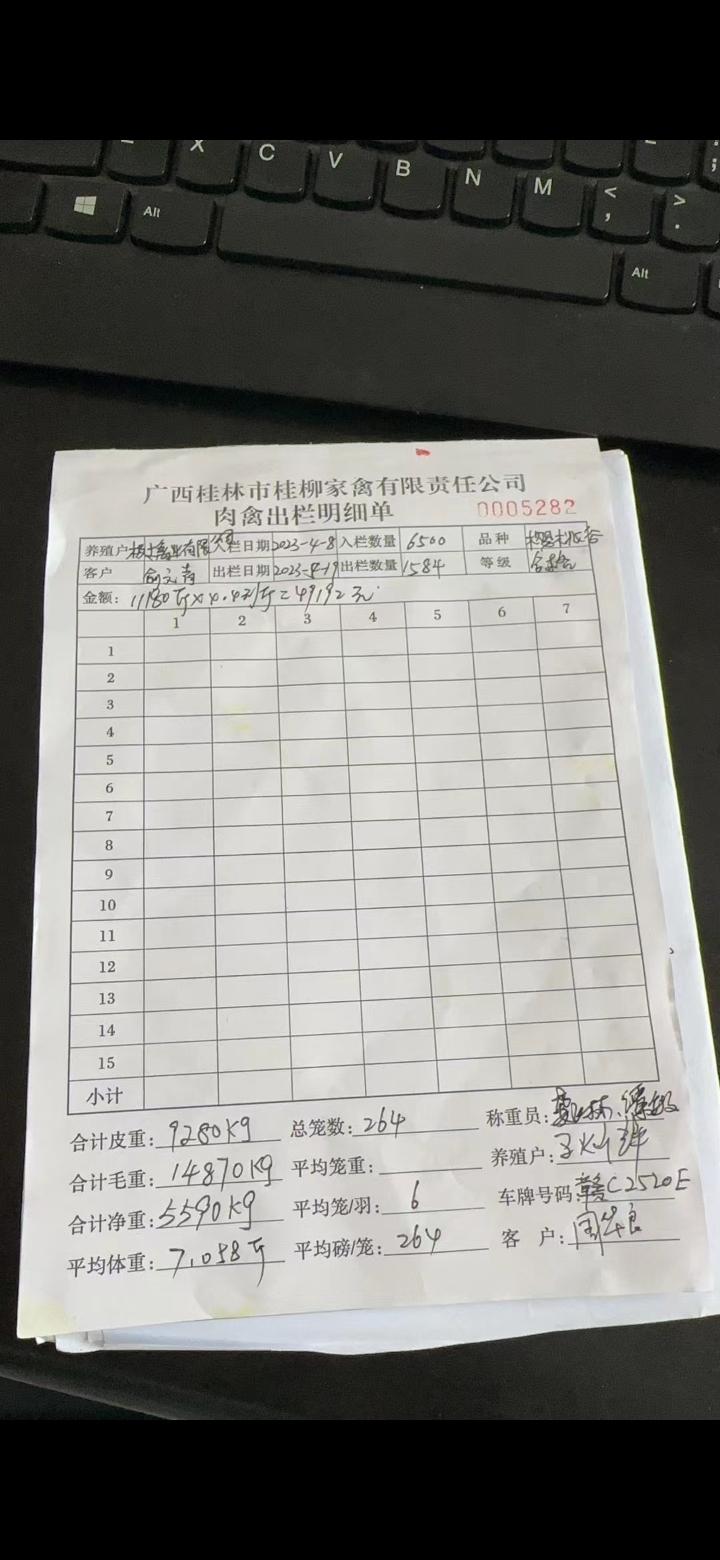 X C V B N M < , > .
Alt Alt
广西桂林市桂柳家禽有限责任公司
肉禽出栏明细单 0005282
养殖户 禽业有限 入栏日期 2023-4-8 入栏数量 6500 品种
客户 出栏日期 出栏数量 1584 等级
金额: 11180斤×4.4元/斤=49192元
1 2 3 4 5 6 7
1
2
3
4
5
6
7
8
9
10
11
12
13
14
15
小计
合计皮重: 9280Kg 总笼数: 264 称重员:
合计毛重: 14870Kg 平均笼重: 养殖户:
合计净重: 5590Kg 平均笼/羽: 6 车牌号码: 赣C2520E
平均体重: 7.058斤 平均磅/笼: 264 客 户: